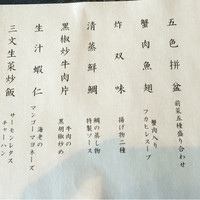 五色拼盆
前菜五種盛り合わせ
蟹肉魚翅
蟹肉入り
フカヒレスープ
炸双味
揚げ物二種
清蒸鮮鯛
鯛の蒸し物
特製ソース
黒椒炒牛肉片
牛肉の
黒胡椒炒め
生汁蝦仁
海老の
マンゴーマヨネーズ
三文生菜炒飯
サーモンレタス
チャーハン